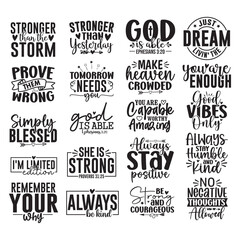 STRONGER
than the
STORM
STRONGER
than
Yesterday
GOD
is able
EPHESIANS 3:20
JUST
DREAM
LIVIN' THE
PROVE
THEM
WRONG
TOMORROW
NEEDS
you
MAKE
heaven
CROWDED
you are
ENOUGH
Simply
BLESSED
god
IS ABLE
YOU ARE
Capable
worthy
Amazing
Good
VIBES
Only
I'M LIMITED
edition
SHE IS
STRONG
PROVERBS 31:25
Always
STAY
positive
ALWAYS
Stay
Humble
and
Kind
REMEMBER
YOUR
why
ALWAYS
be kind
Be
STRONG
AND
COURAGEOUS
NO
NEGATIVE
THOUGHTS
Allowed